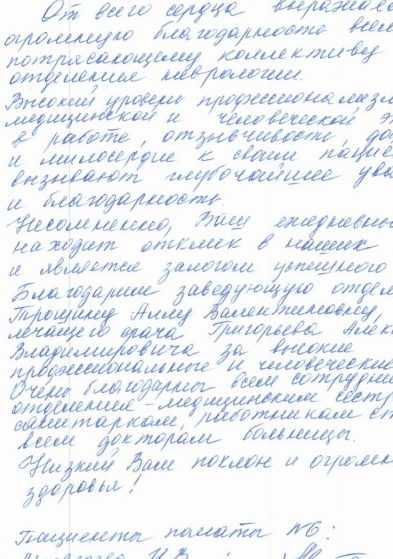 От всего сердца выражаем
огромную благодарность всем
потрясающему коллективу
отделения неврологии.
Высокий уровень профессионализм
медицинской и человеческой э
в работе, отзывчивость, до
и милосердие к своим пацие
вызывают глубочайшее ува
и благодарность
Несомненно, Ваш ежедневны
находит отклик в наших
и является залогом успешного
Благодарим заведующую отдел
Трошину Аллу Валентиновну,
лечащего врача Григорьева Алек
Владимировича за высокие
профессиональные и человеческие
Очень благодарны всем сотрудни
отделения - медицинским сестр
санитаркам, работникам ст
всем докторам больницы.
Низкий Вам поклон и огром
здоровья!
Пациенты палаты №6: